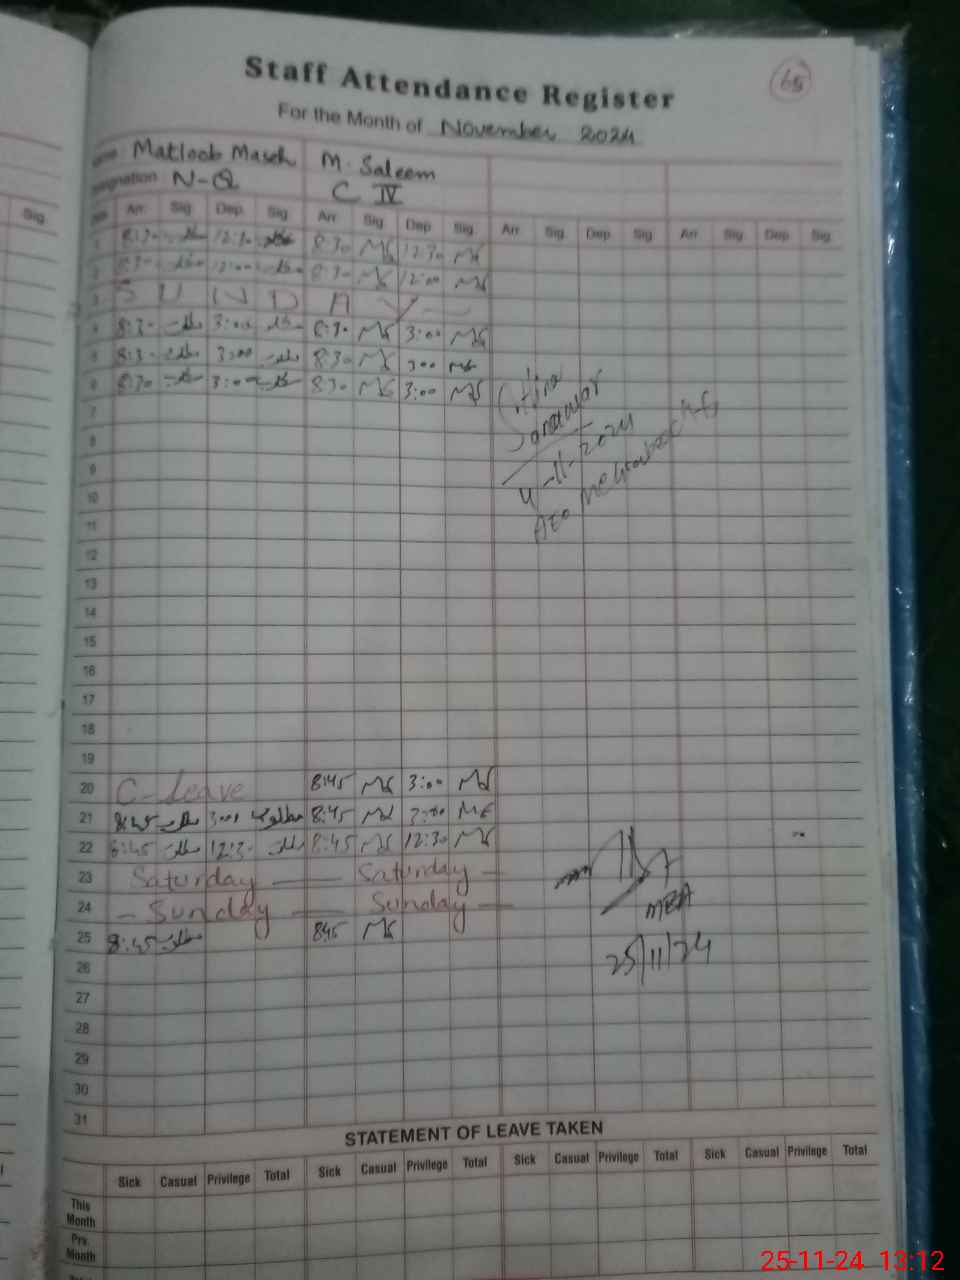 65
Staff Attendance Register
For the Month of November 2024
Matloob Maseh M. Saleem
N-Q C IV
Sig.
Arr. Sig. Dep. Sig. Arr. Sig. Dep. Sig. Arr. Sig. Dep. Sig. Arr. Sig. Dep. Sig.
1 8:30 12:30 8:30 MS 12:30 MS
2 8:30 12:00 8:30 MS 12:00 MS
3 S U N D A Y
4 8:30 3:00 8:30 MS 3:00 MS
5 8:30 3:00 8:30 MS 3:00 MS
6 8:30 3:00 8:30 MS 3:00 MS
7
8
9
4-11-2024
10
11
AEO
12
13
14
15
16
17
18
19
20 C-Leave 8:45 MS 3:00 MS
21 8:45 مطلوب 3:00 مطلوب 8:45 MS 3:00 MS
22 8:45 12:30 8:45 MS 12:30 MS
23 Saturday — Saturday —
24 - Sunday — Sunday —
MEA
25 8:45 مطلوب 8:45 MS
25/11/24
26
27
28
29
30
31
STATEMENT OF LEAVE TAKEN
Sick Casual Privilege Total Sick Casual Privilege Total Sick Casual Privilege Total Sick Casual Privilege Total
This Month
Prv. Month
25-11-24 13:12